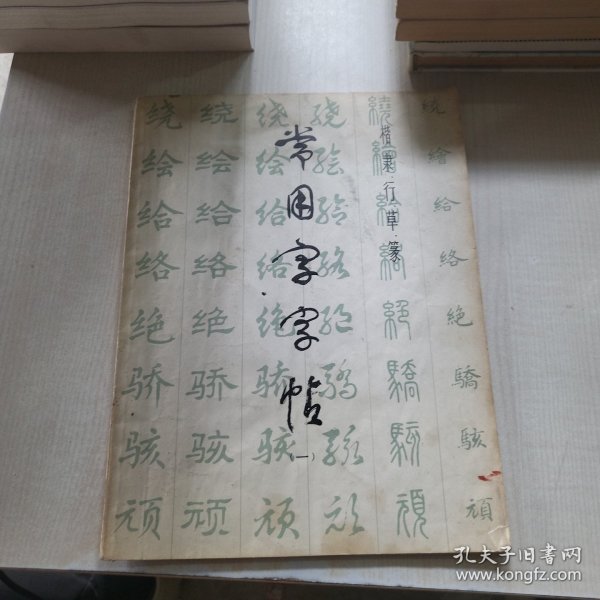 常用字字帖
(一)
楷·隶·行·草·篆
绕 绕 绕 绕 繞 绕
绘 绘 绘 绘 繪 繪
给 给 给 给 給 給
络 络 络 络 絡 絡
绝 绝 绝 绝 絕 絶
骄 骄 骄 驕 驕 驕
骇 骇 骇 骇 駭 駭
顽 顽 顽 顽 頑 頑
孔夫子旧书网
www.kongfz.com